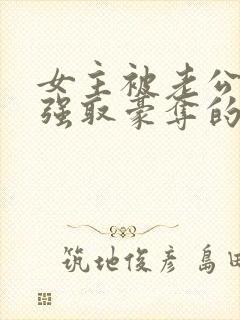 女主被老公
强取豪夺的
筑地俊彦 岛田